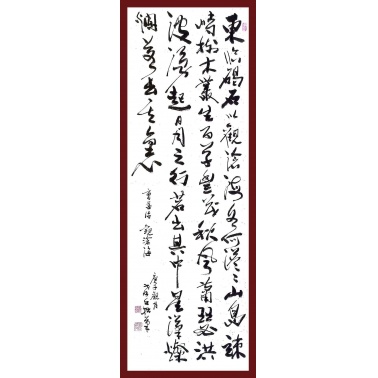 東臨碣石以觀滄海水何澹々山島竦
峙樹木叢生百草豐茂秋風蕭瑟洪
波湧起日月之行若出其中星漢燦
爛若出其裏
曹操詩 觀滄海
庚子